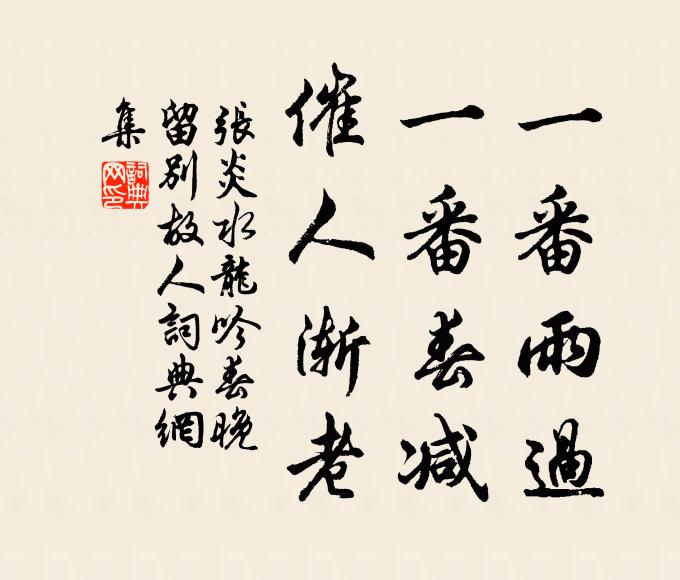 一番雨過
一番春减
催人渐老
張炎水龍吟春晚
留别故人詞典網
集
詞典
网印